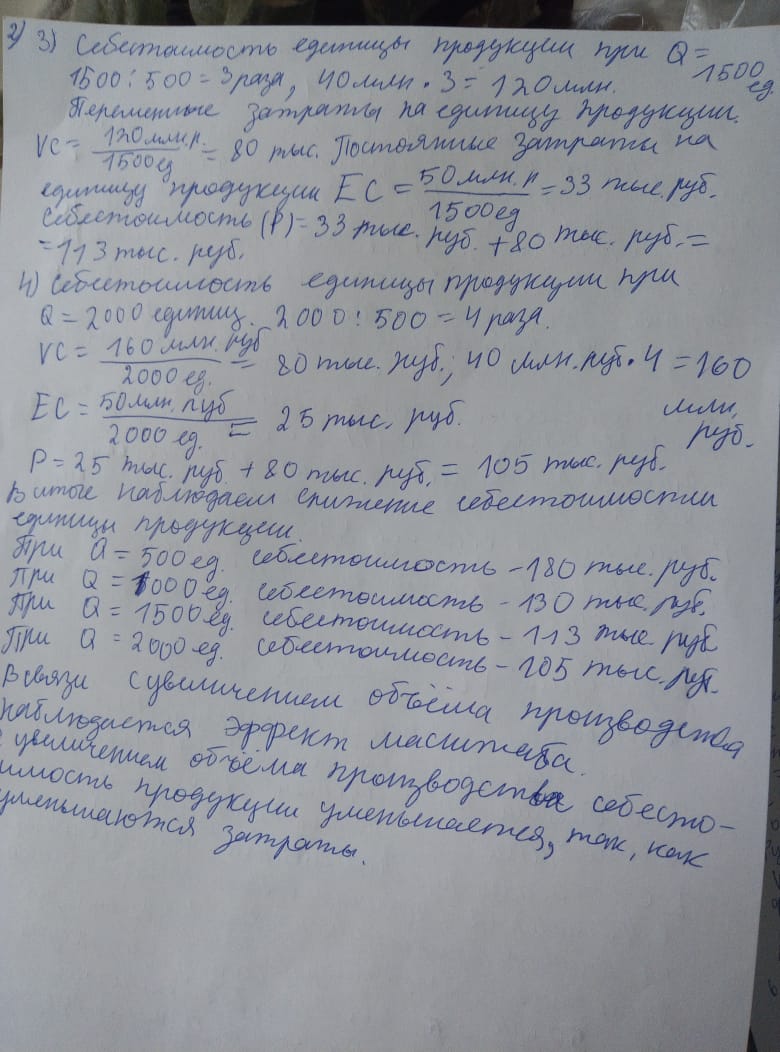 2) 3) Себестоимость единицы продукции при Q = 1500 ед.
1500 : 500 = 3 раза, 40 млн · 3 = 120 млн.
Переменные затраты на единицу продукции.
VC = 120 млн.р. / 1500 ед = 80 тыс. Постоянные затраты на
единицу продукции EC = 50 млн. р / 1500 ед = 33 тыс. руб.
Себестоимость (P) = 33 тыс. руб. + 80 тыс. руб. =
= 113 тыс. руб.
4) Себестоимость единицы продукции при
Q = 2000 единиц. 2000 : 500 = 4 раза.
VC = 160 млн. руб / 2000 ед. = 80 тыс. руб.; 40 млн. руб · 4 = 160 млн. руб.
EC = 50 млн. руб / 2000 ед. = 25 тыс. руб.
P = 25 тыс. руб. + 80 тыс. руб. = 105 тыс. руб.
В итоге наблюдаем снижение себестоимости
единицы продукции.
При Q = 500 ед. себестоимость - 180 тыс. руб.
При Q = 1000 ед. себестоимость - 130 тыс. руб.
При Q = 1500 ед. себестоимость - 113 тыс. руб
При Q = 2000 ед. себестоимость - 105 тыс. руб.
В связи с увеличением объёма производства
наблюдается эффект масштаба.
с увеличением объёма производства себесто-
имость продукции уменьшается, так, как
уменьшаются затраты.